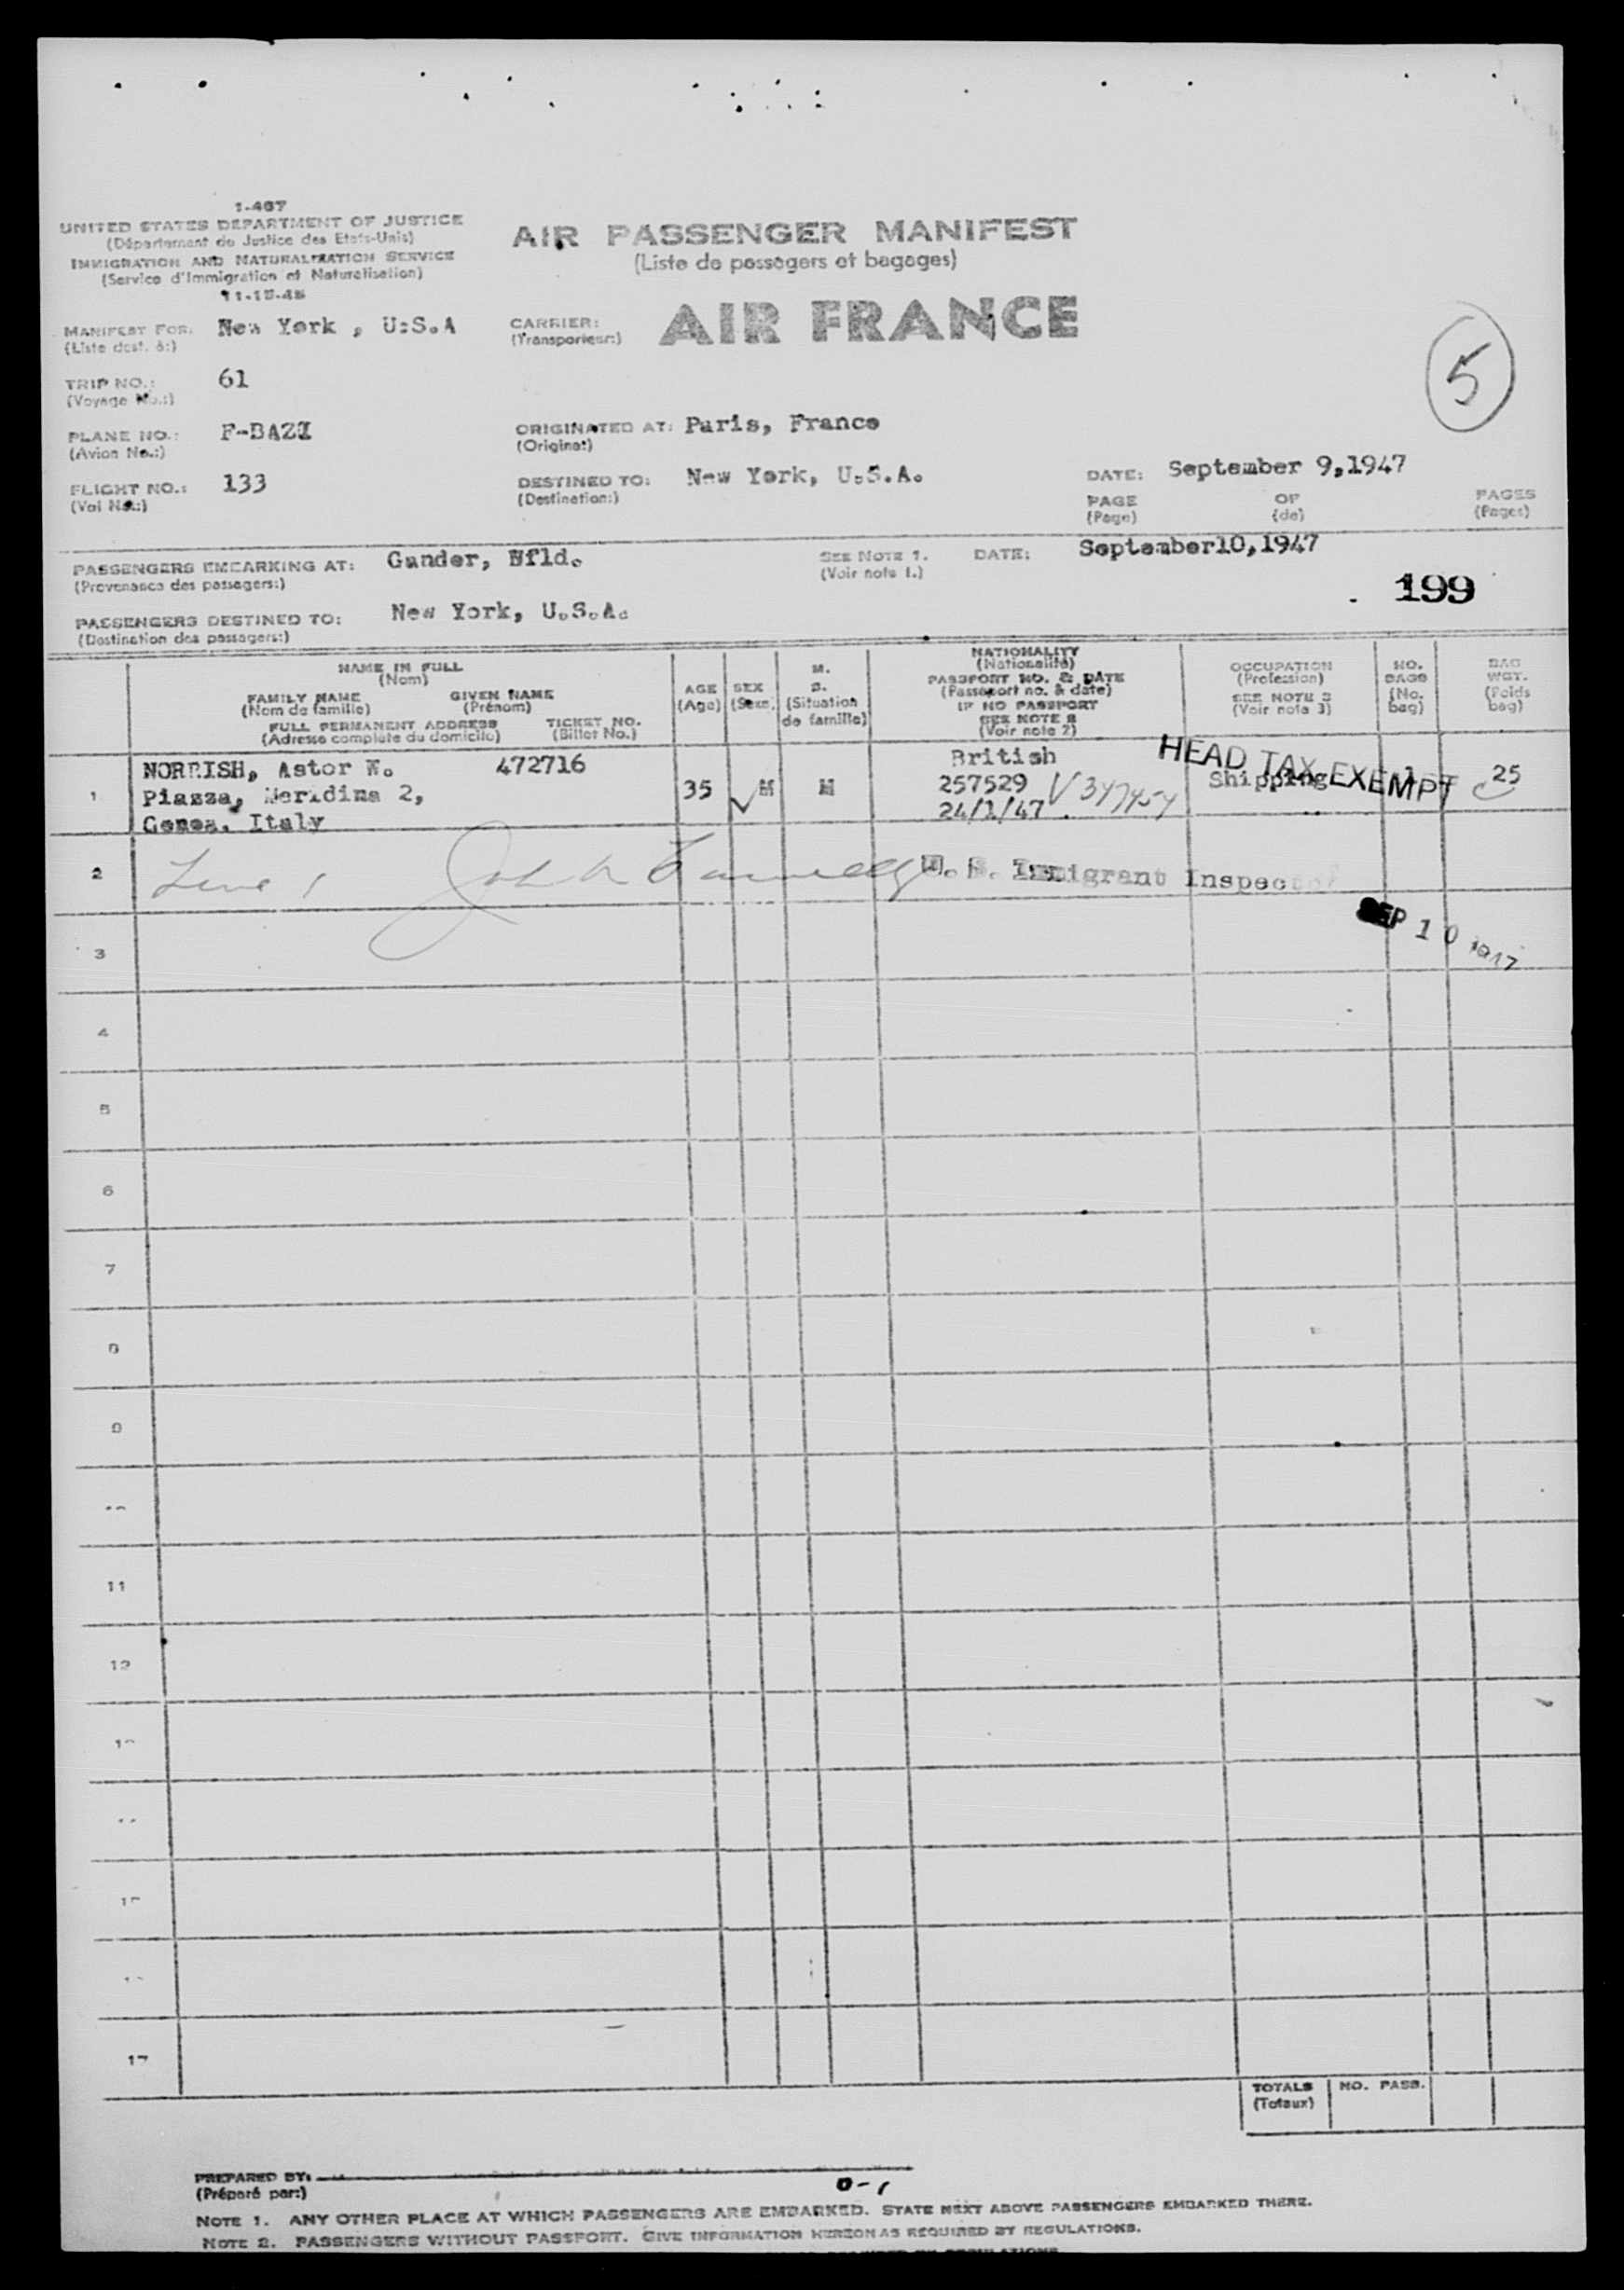 1-467
UNITED STATES DEPARTMENT OF JUSTICE
(Département de Justice des Etats-Unis)
IMMIGRATION AND NATURALIZATION SERVICE
(Service d'Immigration et Naturalisation)
11-15-45
AIR PASSENGER MANIFEST
(Liste de passagers et bagages)
MANIFEST FOR: New York , U.S.A
(Liste dest. à:)
CARRIER: AIR FRANCE
(Transporteur:)
5
TRIP NO.: 61
(Voyage No.:)
PLANE NO.: F-BAZI
(Avion No.:)
ORIGINATED AT: Paris, France
(Origine:)
FLIGHT NO.: 133
(Vol No.:)
DESTINED TO: New York, U.S.A.
(Destination:)
DATE: September 9,1947
PAGE OF PAGES
(Page) (de) (Pages)
PASSENGERS EMBARKING AT: Gander, Nfld.
(Provenance des passagers:)
SEE NOTE 1. DATE: September10,1947
(Voir note 1.)
199
PASSENGERS DESTINED TO: New York, U.S.A.
(Destination des passagers:)
NAME IN FULL
(Nom)
FAMILY NAME GIVEN NAME
(Nom de famille) (Prénom)
FULL PERMANENT ADDRESS TICKET NO.
(Adresse complète du domicile) (Billet No.)
AGE
(Age)
SEX
(Sexe)
M.
S.
(Situation
de famille)
NATIONALITY
(Nationalité)
PASSPORT NO. & DATE
(Passeport no. & date)
IF NO PASSPORT
SEE NOTE 2
(Voir note 2)
OCCUPATION
(Profession)
SEE NOTE 3
(Voir note 3)
NO.
BAGS
(No.
bag)
BAG
WGT.
(Poids
bag)
1
NORRISH, Astor W. 472716
Piazza, Meridina 2,
Genoa, Italy
35 M M
British
257529 V 347454
24/1/47
Shipping
HEAD TAX EXEMPT
25
2
Line 1
U. S. Immigrant Inspector
SEP 10 1947
3
4
5
6
7
8
9
11
12
17
TOTALS NO. PASS.
(Totaux)
PREPARED BY:
(Préparé par:)
0-1
NOTE 1. ANY OTHER PLACE AT WHICH PASSENGERS ARE EMBARKED. STATE NEXT ABOVE PASSENGERS EMBARKED THERE.
NOTE 2. PASSENGERS WITHOUT PASSPORT. GIVE INFORMATION HEREON AS REQUIRED BY REGULATIONS.